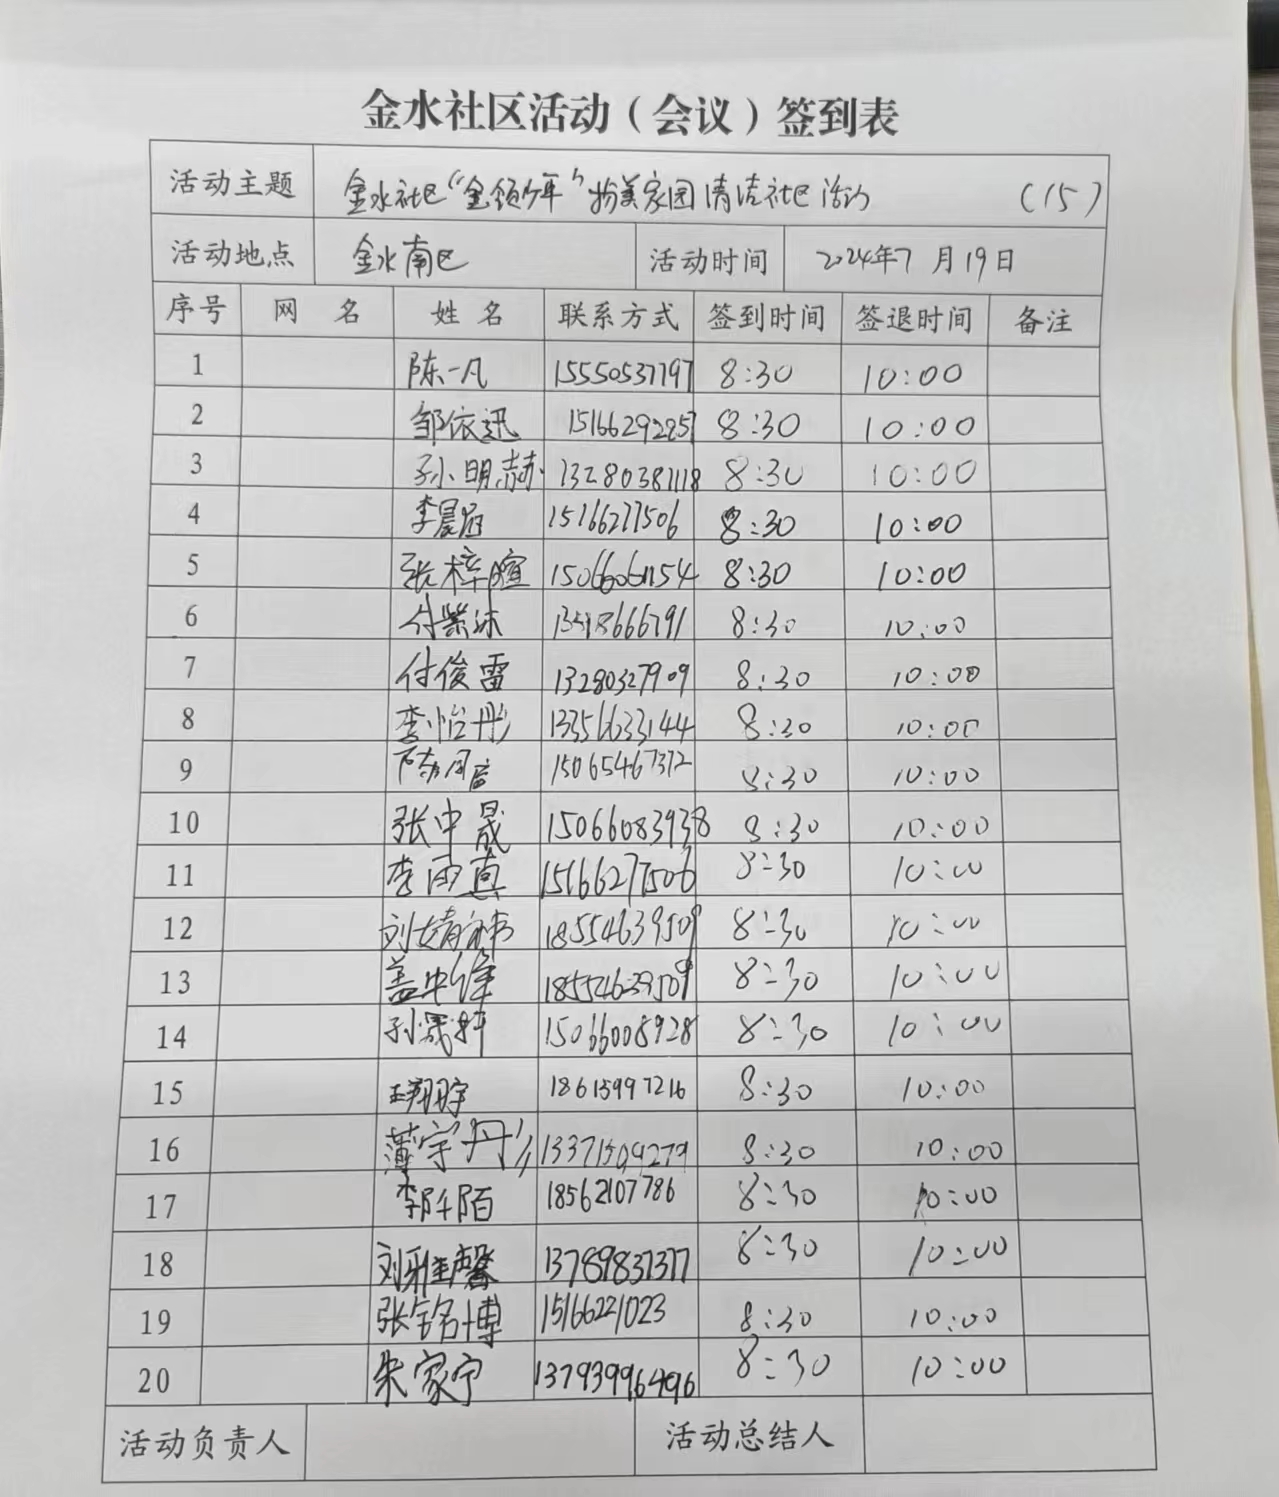 金水社区活动（会议）签到表
活动主题 金水社区“金领少年”扮美家园清洁社区活动 （15）
活动地点 金水南区 活动时间 2024年7月19日
序号 网 名 姓 名 联系方式 签到时间 签退时间 备注
1 陈一凡 15550537797 8:30 10:00
2 邹依迅 15166292257 8:30 10:00
3 孙小明赫 13280381118 8:30 10:00
4 李晨冠 15166277506 8:30 10:00
5 张梓暄 8:30 10:00
6 付紫沐 8:30 10:00
7 付俊雷 13280327909 8:30 10:00
8 李怡彤 13356633144 8:30 10:00
9 15065467372 8:30 10:00
10 张中晟 15066083938 8:30 10:00
11 李雨真 15166277506 8:30 10:00
12 刘婧祎 18554639509 8:30 10:00
13 盖中锋 18554639509 8:30 10:00
14 孙晟轩 15066008928 8:30 10:00
15 王翔宇 18615997216 8:30 10:00
16 薄宇彤 13371509279 8:30 10:00
17 李阡陌 18562107786 8:30 10:00
18 刘雅馨 13789837377 8:30 10:00
19 张铭博 15166221023 8:30 10:00
20 朱家宁 13793996496 8:30 10:00
活动负责人 活动总结人